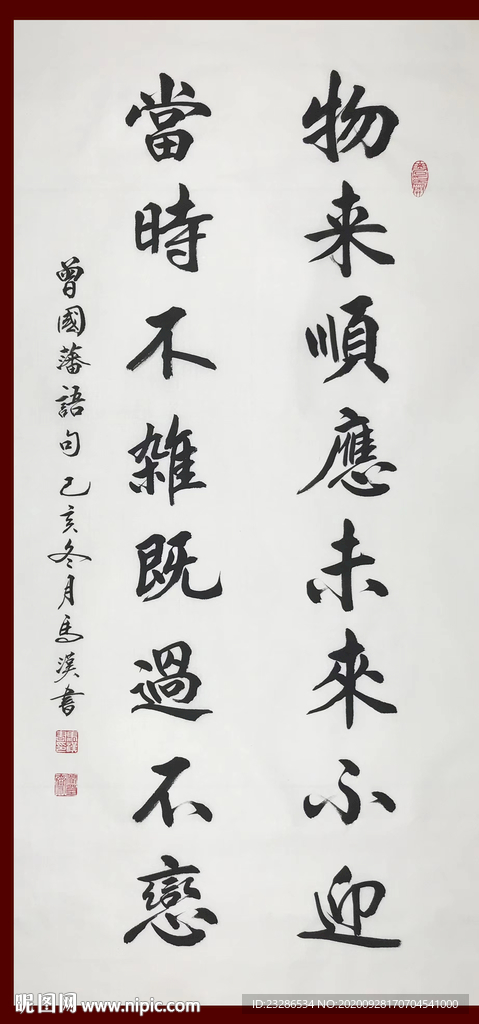 物来順應未來不迎
當時不雑既過不戀
曾國藩語句 己亥冬月馬漢書
昵图网 www.nipic.com
ID:23286534 NO:20200928170704541000